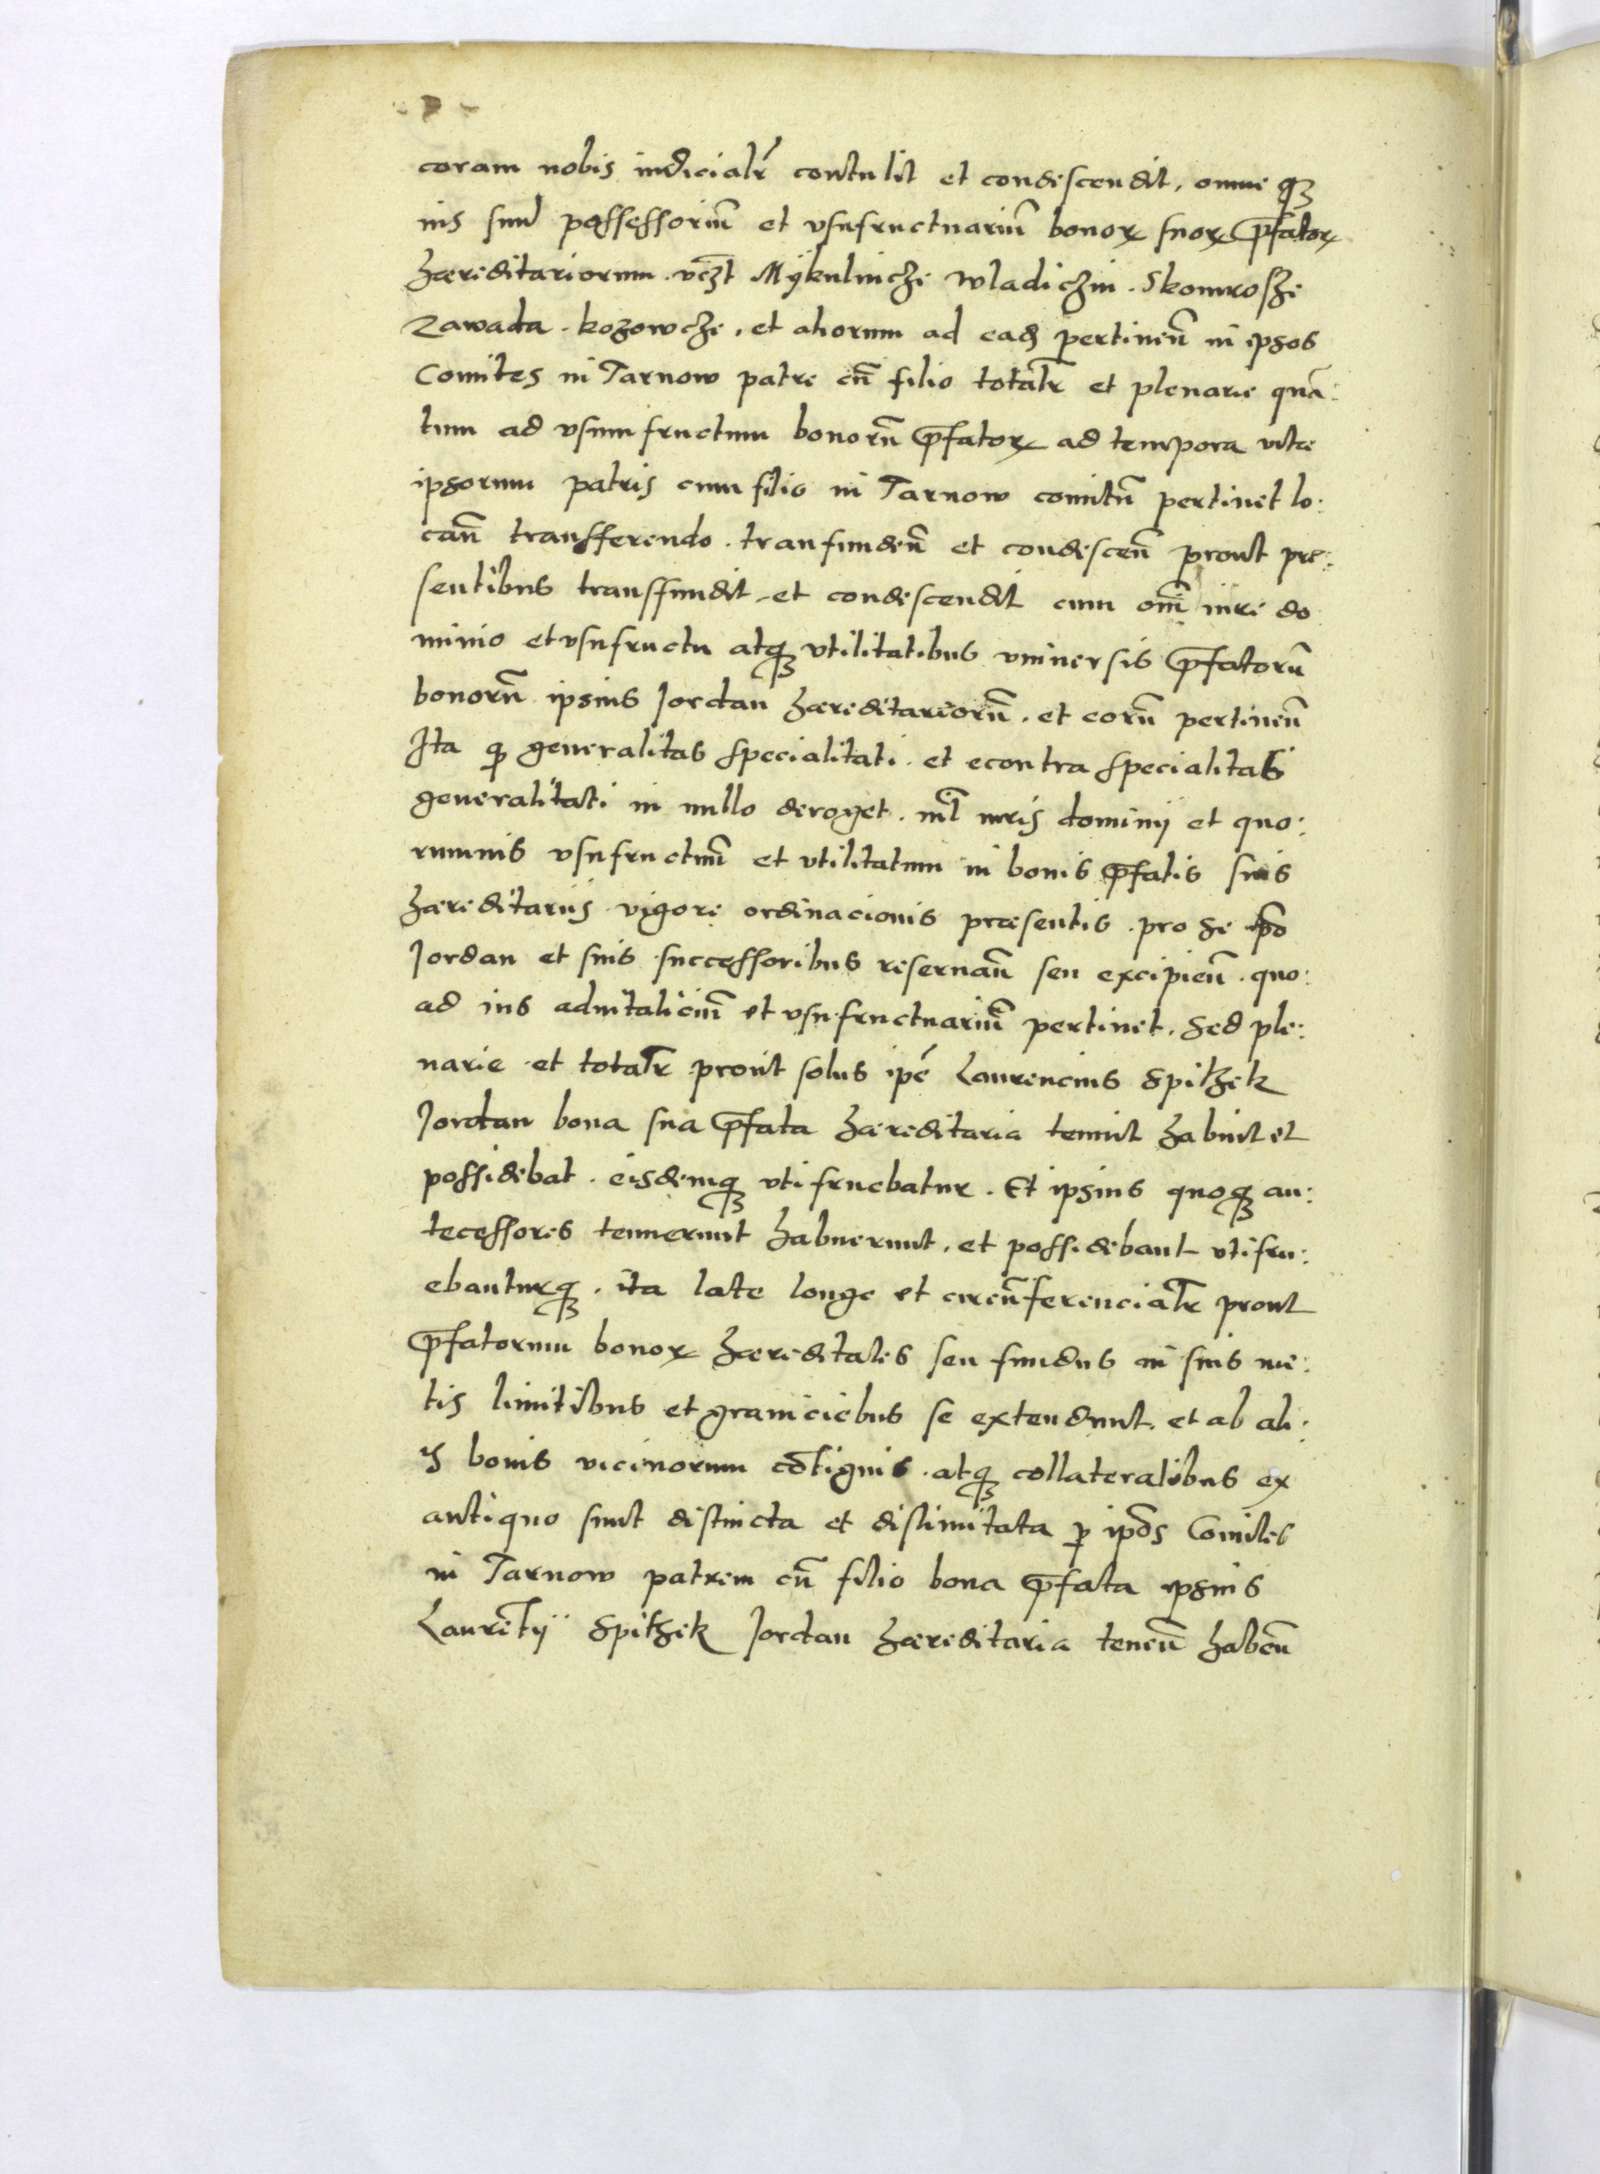 coram nobis iudicialr̄ contulit et condescendit, omneqꝫ
ius suū possessoriū et vsufructuariū bonoꝝ suoꝝ p̄fatoꝝ
hæreditariorum. vcꝫt Mÿkulincze Wladiczin. Skomrosze
Zawada. kozowcze, et aliorum ad eadē pertineñ in ipsos
Comites in Tarnow patre cū filio totalr̄ et plenarie quā:
tum ad vsumfructum bonorū p̄fatoꝝ ad tempora vitæ
ipsorum patris cum filio in Tarnow comitū pertinet lo:
cañ transferendo. transfundeñ et condesceñ prout præ:
sentibus transfundit et condescendit cum om̄i iure do
minio et vsufructu atqꝫ vtilitatibus vniuersis p̄fatorū
bonorū ipsius Jordan hæreditariorū. et eorū pertineñ
Ita ꝙ generalitas specialitati. et econtra specialitas
generalitati in nullo deroget. nil̄ iuris dominÿ et quo:
rumuis vsufructuū et vtilitatum in bonis p̄fatis suis
hæreditarÿs vigore ordinacionis præsentis. pro se ip̄o
Jordan et suis successoribus reseruañ seu excipieñ. quo:
ad ius aduitaliciū et vsufructuariū pertinet. Sed ple:
narie et totalr̄ prout solus ip̄e Laurencius Spithek
Jordan bona sua p̄fata hæreditaria tenuit habuit et
possidebat. eisdemqꝫ vtifruebatur. Et ipsius quoqꝫ an:
tecessores tenuerunt habuerunt, et possidebant vtifru:
ebanturqꝫ. ita late longe et circūferencialr̄ prout
p̄fatorum bonoꝝ hæreditates seu fundus in suis me:
tis limitibus et graniciebus se extendunt. et ab ali:
ÿs bonis vicinorum cōtiguis. atqꝫ collateralibus ex
antiquo sunt distincta et dislimitata ꝑ ip̄os Comites
in Tarnow patrem cū filio bona p̄fata ipsius
Laurētÿ Spithek Jordan hæreditaria teneñ habeñ